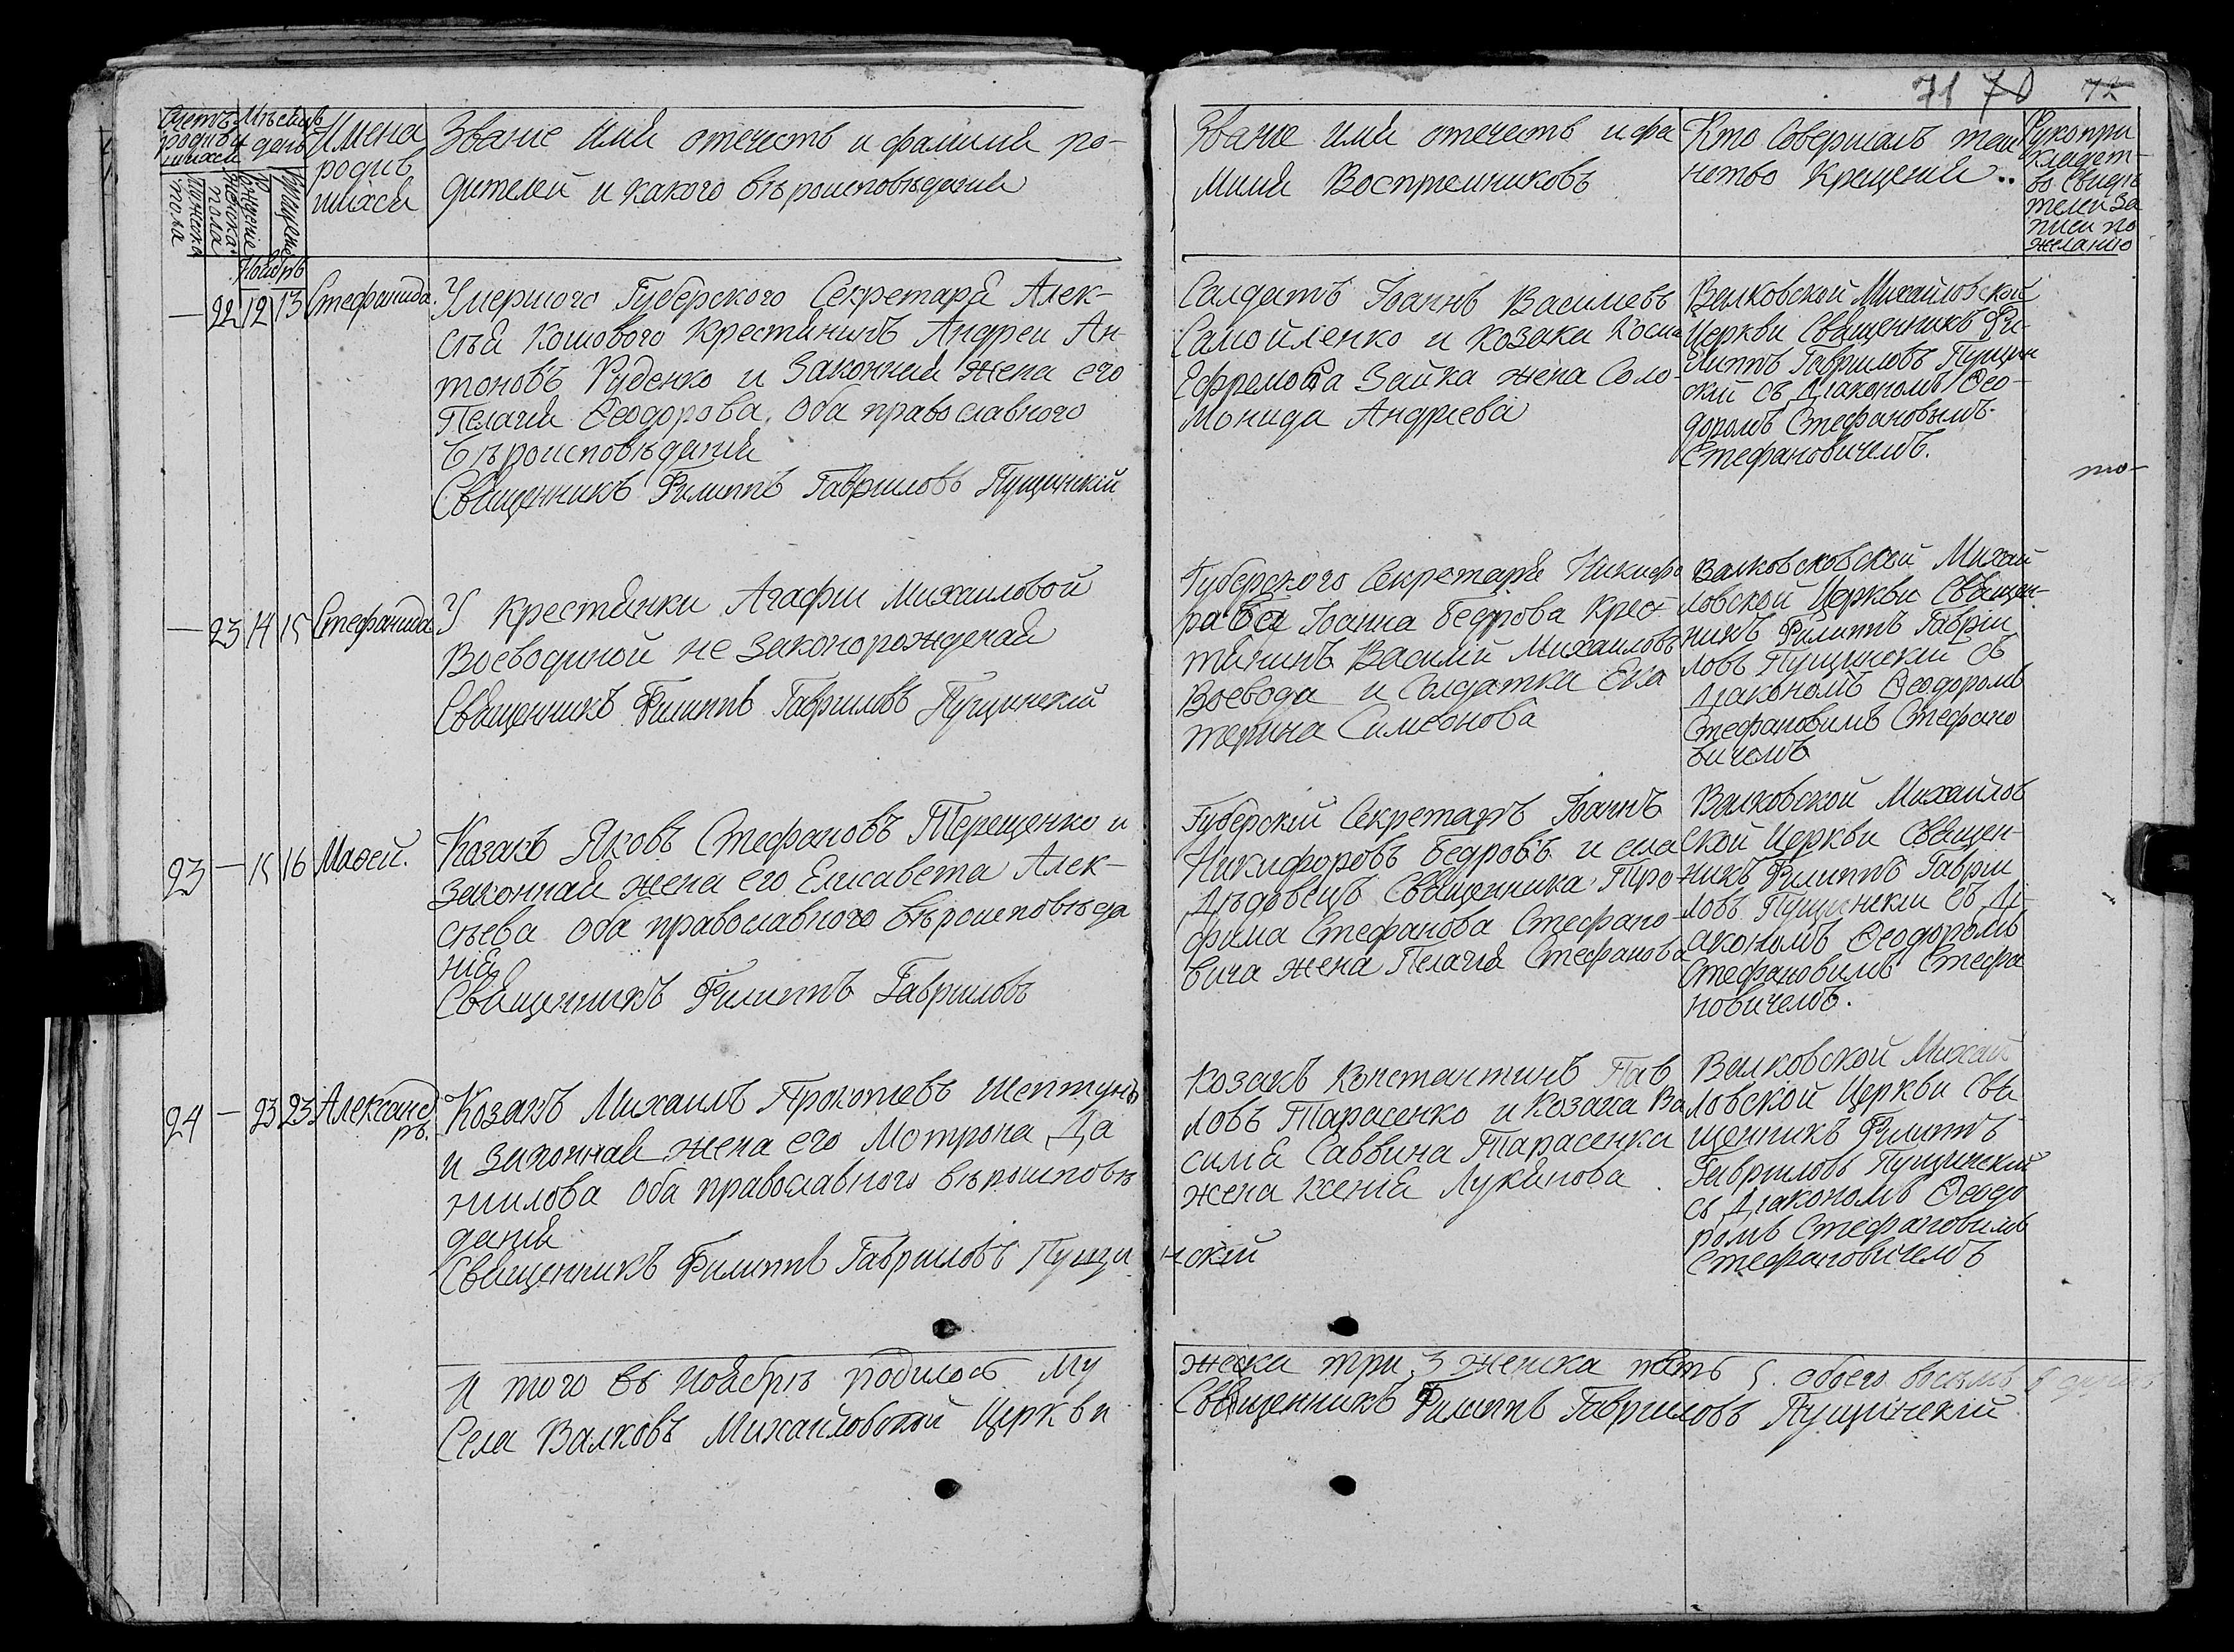 71 70 72
Счетъ родив шихся
Мѣсяцъ и день
Имена родив шихся
Званіе Имя отечеств и фамилія ро-
дителей и какого вѣроисповѣданія
мужеска пола
женска пола
рожденіе
крещеніе
Званіе имя отечеств и фа
милія Восприемниковъ
Кто Совершалъ таи
нство Крещенія..
Рукопри
кладст-
во Свидѣ
телей За
писи по
желанію
Ноябрь
— 22 12 13 Стефанида.
Умершого Губерского Секретаря Алек-
сѣя Кошового Крестянинъ Андреи Ан
тоновъ Руденко и Законная жена его
Пелагія Ѳеодорова, Оба православного
Вѣроисповѣданія
Священникъ Филиппъ Гавриловъ Пущинскій
Салдатъ Іоаннъ Василиевъ
Самойленко и Козака Косма
Ефремова Зайка жена Соло-
монида Андриева
Валковской Михаиловской
Церкви Священникъ Фи-
липпъ Гавриловъ Пущин
скій съ Діакономъ Ѳео-
доромъ Стефановымъ-
Стефановичемъ.
то-
— 23 14 15 Стефанида
У крестянки Агафіи Михаиловой
Воеводиной не законорожденая
Священникъ Филиппъ Гавриловъ Пущинскій
Губерского Секретаря Никифо
рова Іоанна Бедрова Крес
тянинъ Василій Михаиловъ
Воевода и Солдатка Ека
терина Симеонова
Валковсковской Михай
ловской Церкви Священ-
никъ Филиппъ Гаври
ловъ Пущинскій съ
Діакономъ Ѳеодоромъ
Стефановимъ Стефано
вичемъ
23 — 15 16 Маѳей.
Козакъ Яковъ Стефановъ Терещенко и
законная жена его Елисавета Алек-
сѣева оба православного вѣроисповѣда
нія
Священникъ Филиппъ Гавриловъ
Губерскій Секретаръ Іоаннъ
Никифоровъ Бедровъ и села
Дѣдовецъ Священника Тро
фима Стефанова Стефано-
вича жена Пелагія Стефанова
Валковской Михаилов
ской Церкви Священ-
никъ Филиппъ Гаври
ловъ Пущинскій съ Ді-
акономъ Ѳеодоромъ
Стефановимъ Стефа
новичемъ.
24 — 23 23 Александ
ръ.
Козакъ Михаилъ Прокопіевъ Шептунъ
и законная жена его Мотрона Да
нилова оба православного вѣроисповѣ
данія
Священникъ Филиппъ Гавриловъ Пущи нскій
Козакъ Константинъ Пав
ловъ Тарасенко и Козака Ва
силія Саввина Тарасенка
жена Ксенія Лукянова
Валковской Михай
ловской Церкви Свя
щенникъ Филиппъ
Гавриловъ Пущинскій
съ Діакономъ Ѳеодо
ромъ Стефановимъ
Стефановичемъ
И того въ Ноябрѣ родилось му
жеска три 3 женска пять 5. обоего восемь 8 душъ
Села Валковъ Михаиловской Церкви
Священникъ Филиппъ Гавриловъ Пущинскій